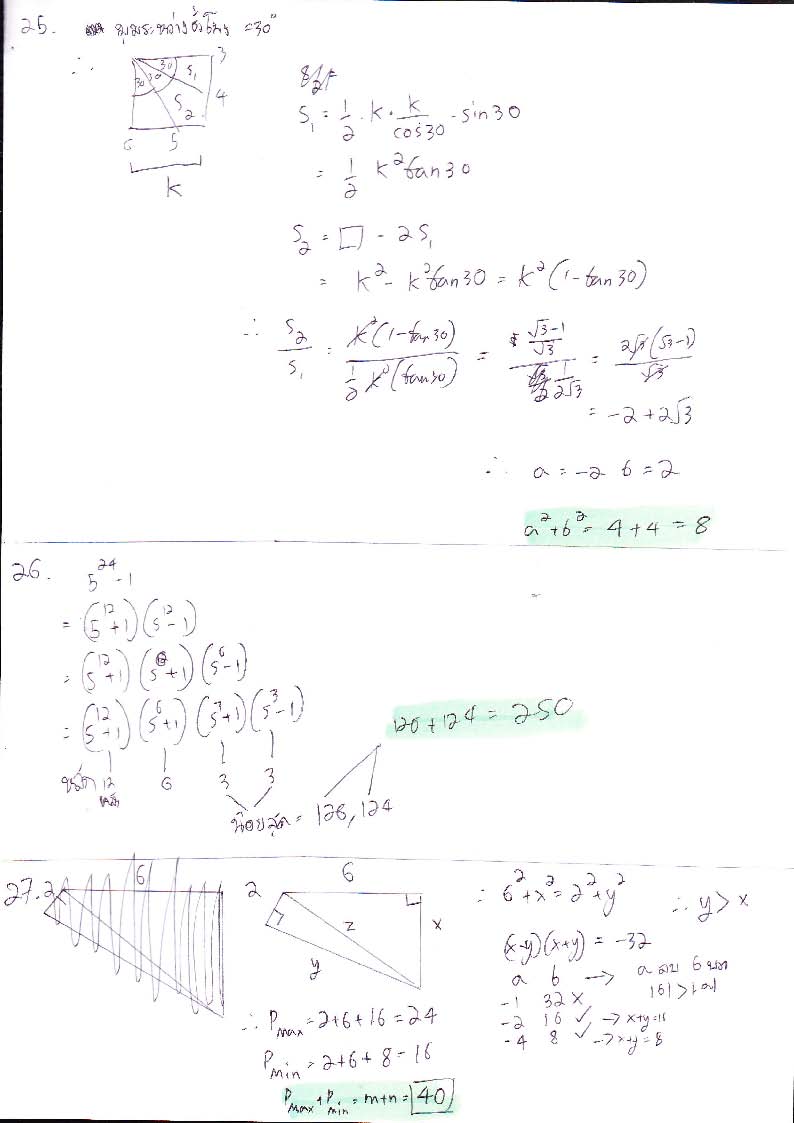 25. มุมระหว่างชั่วโมง = 30°
∴
30 3
30 30 S₁
S₂ 4
6 5
k
S₁ = 1/2 · k · k/cos30 · sin30
= 1/2 k² tan30
S₂ = □ - 2S₁
= k² - k² tan30 = k² (1 - tan30)
∴ S₂/S₁ = k²(1 - tan30) / 1/2 k²(tan30) = (√3-1)/√3 / 1/2√3 = 2√3(√3-1)/√3
= -2 + 2√3
∴ a = -2 b = 2
a² + b² = 4 + 4 = 8
26. 5²⁴ - 1
= (5¹² + 1) (5¹² - 1)
= (5¹² + 1) (5⁶ + 1) (5⁶ - 1)
= (5¹² + 1) (5⁶ + 1) (5³ + 1) (5³ - 1)
12 6 3 3
หลัก
น้อยสุด = 126, 124
126 + 124 = 250
27. 2 6
2 6
z x
y
∴ 6² + x² = 2² + y² ∴ y > x
(x-y)(x+y) = -32
a b → a ลบ b บวก
-1 32 × |b| > |a|
-2 16 ✓ → x+y = 16
-4 8 ✓ → x+y = 8
∴ Pmax = 2+6+16 = 24
Pmin = 2+6+8 = 16
Pmax + Pmin = m+n = 40